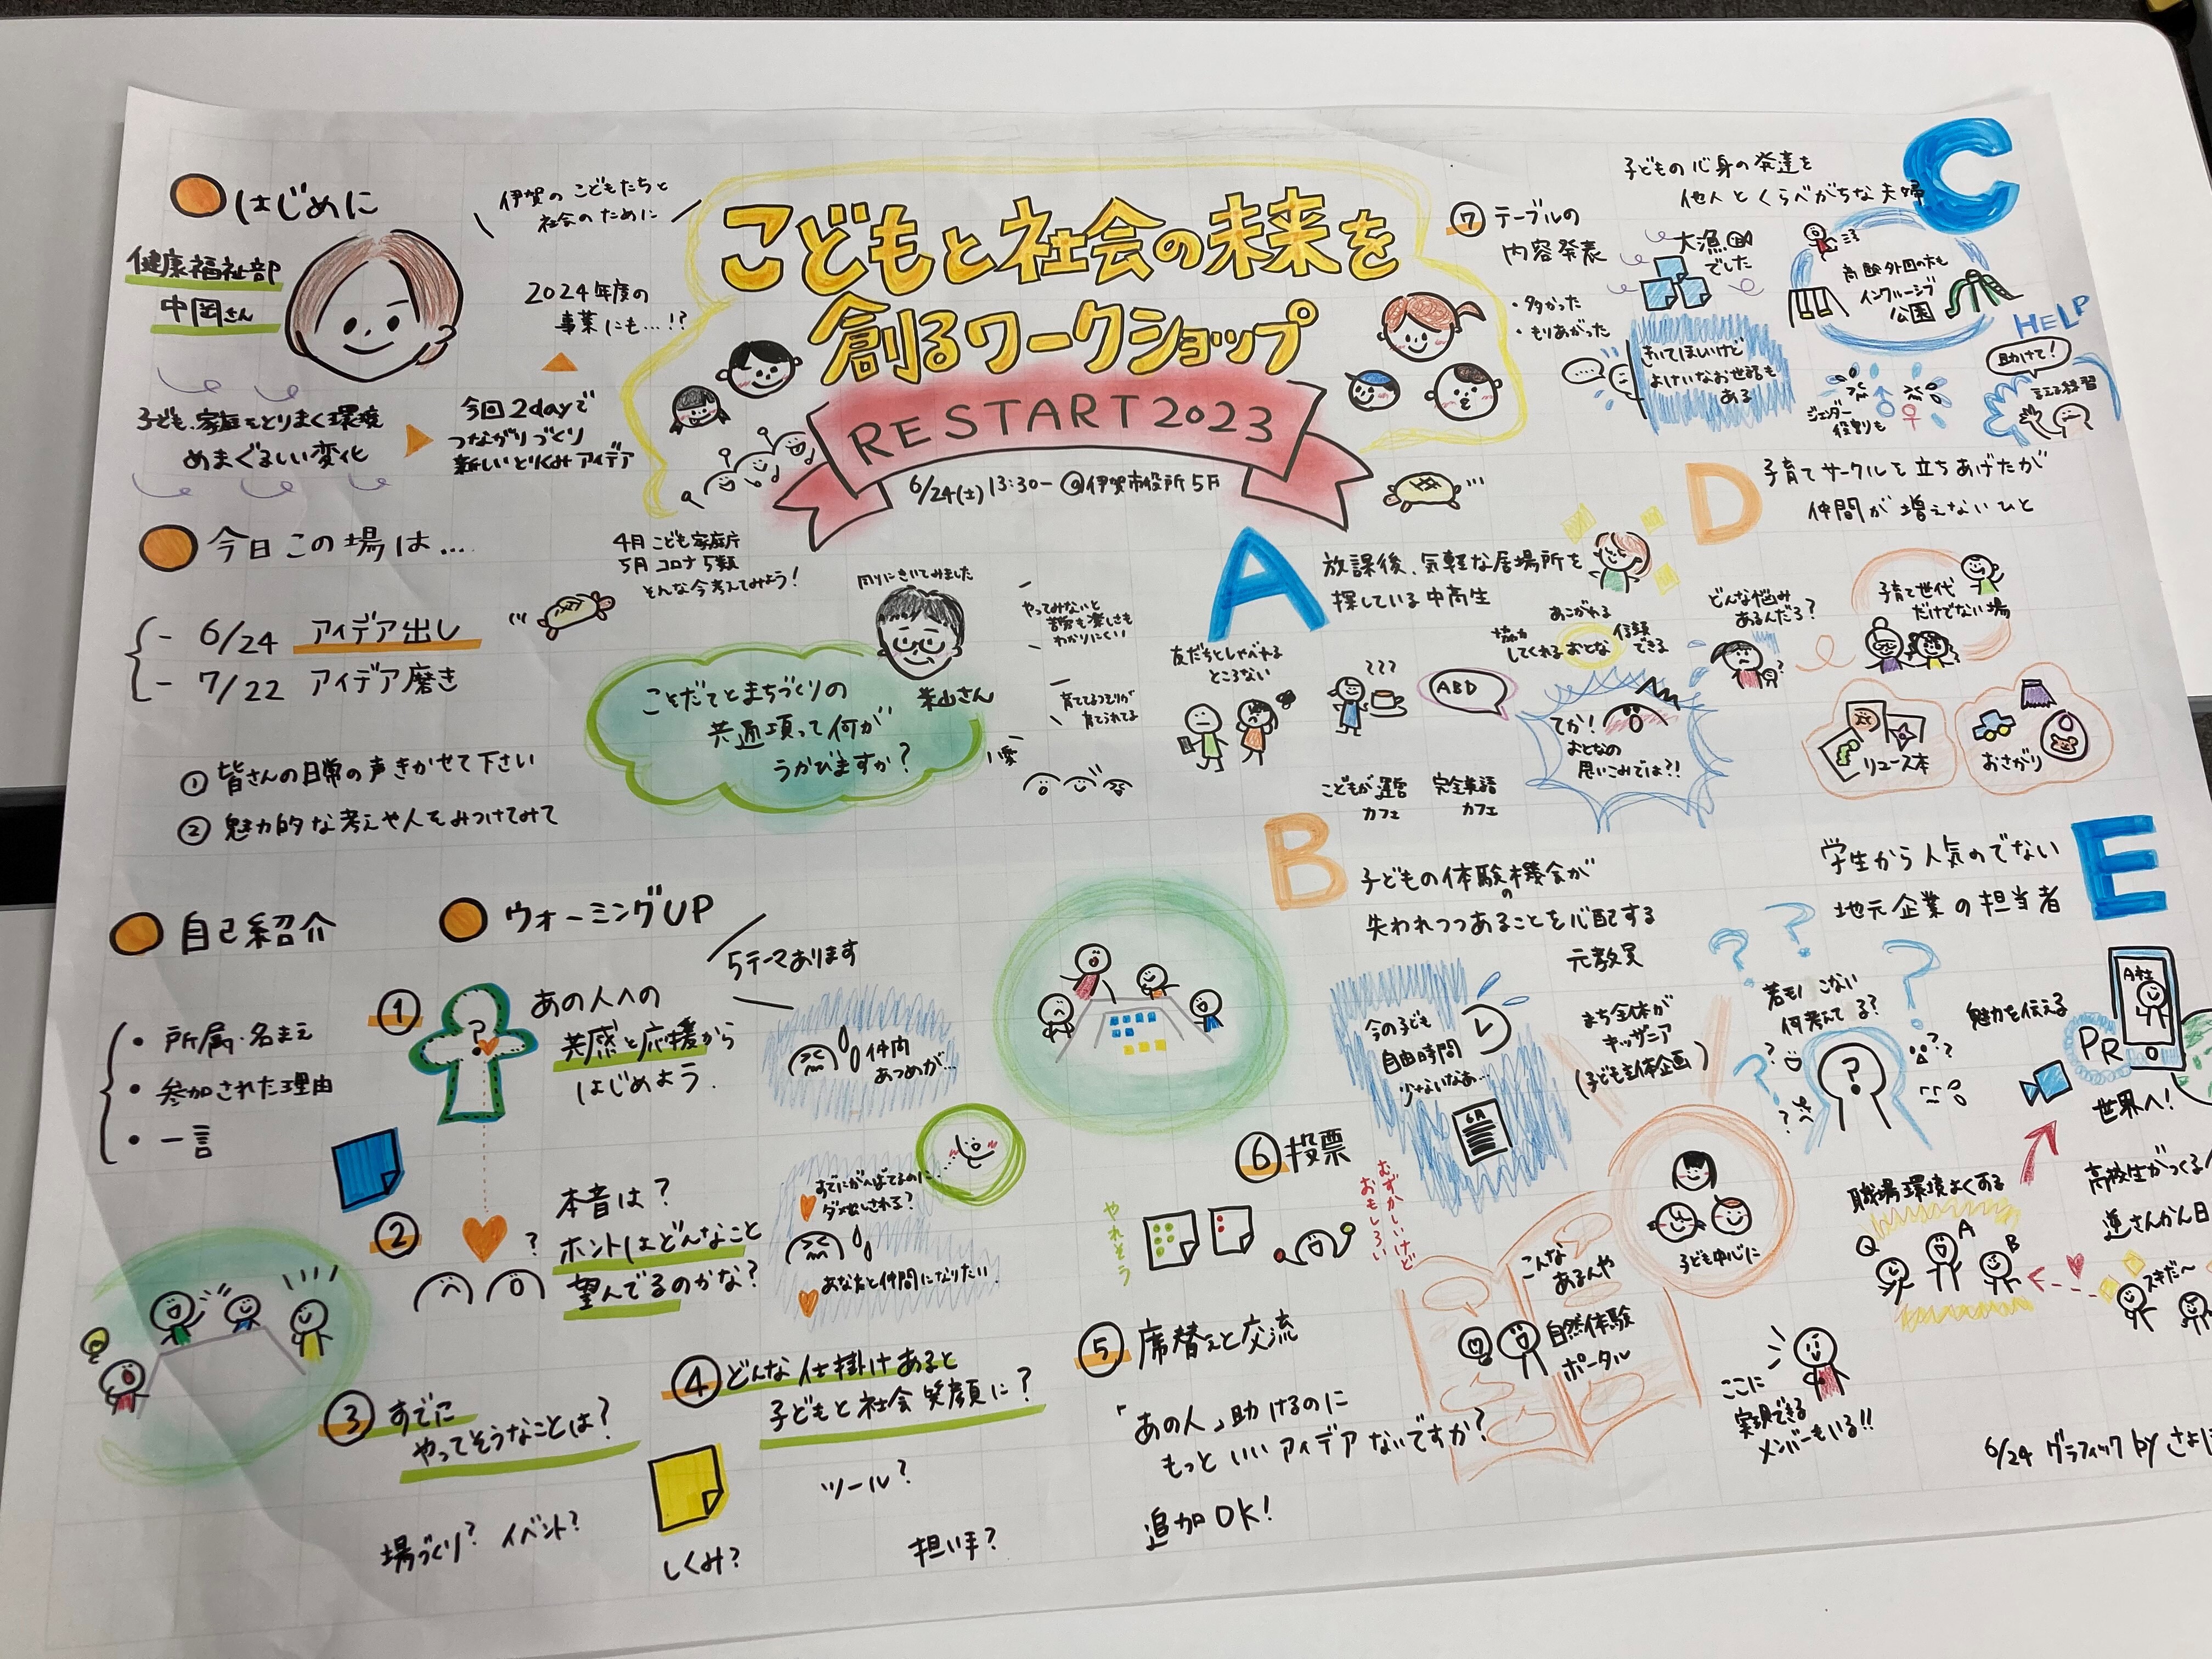 こどもと社会の未来を
創るワークショップ
RESTART2023
6/24(土) 13:30- @伊賀市役所5F
はじめに
健康福祉部
中岡さん
伊賀のこどもたちと
社会のために
2024年度の
事業にも…!?
子ども、家庭をとりまく環境
めまぐるしい変化
今回2dayで
つながりづくり
新しいとりくみアイデア
今日この場は…
- 6/24 アイデア出し
- 7/22 アイデア磨き
① 皆さんの日常の声きかせて下さい
② 魅力的な考えや人をみつけてみて
4月 こども家庭庁
5月 コロナ5類
そんな今考えてみよう!
周りにきいてみました
米山さん
こそだてとまちづくりの
共通項って何が
うかびますか?
やってみないと
苦労も楽しさも
わかりにくい
育ててるつもりが
育てられてる
愛
自己紹介
・所属・名まえ
・参加された理由
・一言
ウォーミングUP
5テーマあります
①
?
あの人への
共感と応援から
はじめよう.
仲間
あつめが…
②
?
本音は?
ホントはどんなこと
望んでるのかな?
すでにがんばってるのに…
ダメ出しされる?
あなたと仲間になりたい
③ すでに
やってそうなことは?
場づくり? イベント?
④ どんな仕掛けあると
子どもと社会笑顔に?
ツール?
しくみ?
担い手?
⑤ 席替えと交流
「あの人」助けるのに
もっといいアイデアないですか?
追加OK!
⑥ 投票
やれそう
むずかしいけど
おもしろい
⑦ テーブルの
内容発表
・多かった
・もりあがった
大漁
でした
A
放課後、気軽な居場所を
探している中高生
友だちとしゃべれる
ところない
???
ABD
こどもが運営
カフェ
完全英語
カフェ
あこがれる
協力
してくれる
おとな
信頼
できる
てか!
おとなの
思いこみでは?!
B
子どもの体験の機会が
失われつつあることを心配する
元教員
今の子ども
自由時間
少ないなぁ…
まち全体が
キッザニア
(子ども主体企画)
子ども中心に
こんな
あるんや
自然体験
ポータル
C
子どもの心身の発達を
他人とくらべがちな夫婦
インクルーシブ
公園
きいてほしいけど
よけいなお世話も
ある
ジェンダー
役割も
HELP
助けて!
言える練習
D
子育てサークルを立ちあげたが
仲間が増えないひと
どんな悩み
あるんだろ?
子育て世代
だけでない場
リユース本
おさがり
E
学生から人気のでない
地元企業の担当者
若モノこない
何考えてる??
?
魅力を伝える
A社
PR
世界へ!
職場環境よくする
Q A B
高校生がつくる
逆さんかん日
スキだ〜
ここに
実現できる
メンバーもいる!!
6/24 グラフィック by さよ